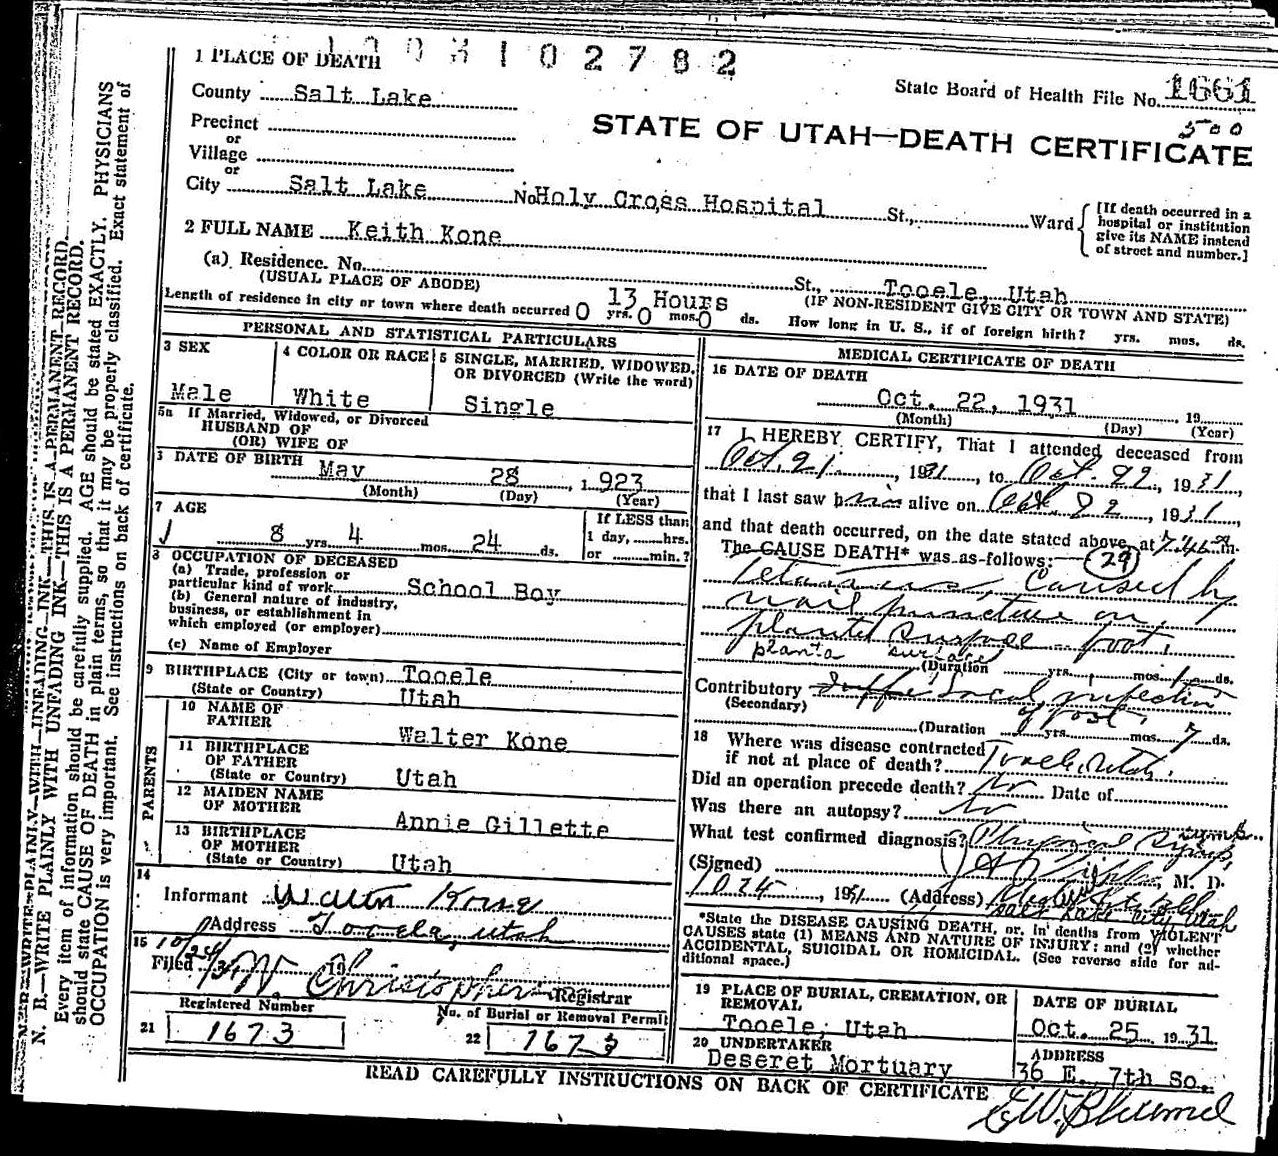 1 PLACE OF DEATH
3 1 0 2 7 8 2
State Board of Health File No. 1661
500
County Salt Lake
STATE OF UTAH—DEATH CERTIFICATE
Precinct
or
Village
or
City Salt Lake No. Holy Cross Hospital St., Ward
[If death occurred in a
hospital or institution
give its NAME instead
of street and number.]
2 FULL NAME Keith Kone
(a) Residence. No. St., Tooele, Utah
(USUAL PLACE OF ABODE) (IF NON-RESIDENT GIVE CITY OR TOWN AND STATE)
Length of residence in city or town where death occurred 0 yrs. 0 mos. 0 ds. 13 Hours How long in U. S., if of foreign birth? yrs. mos. ds.
PERSONAL AND STATISTICAL PARTICULARS
3 SEX
Male
4 COLOR OR RACE
White
5 SINGLE, MARRIED, WIDOWED,
OR DIVORCED (Write the word)
Single
5a If Married, Widowed, or Divorced
HUSBAND OF
(OR) WIFE OF
DATE OF BIRTH May 28, 1923
(Month) (Day) (Year)
7 AGE
8 yrs. 4 mos. 24 ds.
If LESS than
1 day, hrs.
or min.?
8 OCCUPATION OF DECEASED
(a) Trade, profession or
particular kind of work School Boy
(b) General nature of industry,
business, or establishment in
which employed (or employer)
(c) Name of Employer
9 BIRTHPLACE (City or town) Tooele
(State or Country) Utah
PARENTS
10 NAME OF
FATHER Walter Kone
11 BIRTHPLACE
OF FATHER
(State or Country) Utah
12 MAIDEN NAME
OF MOTHER Annie Gillette
13 BIRTHPLACE
OF MOTHER
(State or Country) Utah
14
Informant Walter Kone
Address Tooele, Utah
15
Filed 10/24/31 19 Christopherson Registrar
Registered Number
21 1673
No. of Burial or Removal Permit
22 1673
MEDICAL CERTIFICATE OF DEATH
16 DATE OF DEATH
Oct. 22, 1931 19
(Month) (Day) (Year)
17 I HEREBY CERTIFY, That I attended deceased from
Oct. 21, 1931, to Oct. 22, 1931,
that I last saw him alive on Oct 22, 1931,
and that death occurred, on the date stated above, at 7.45 m.
The CAUSE DEATH* was as follows: 29
Tetanus, Caused by
nail puncture on
planter surface foot.
planta surface
(Duration yrs. mos. ds.
Contributory Local infection
(Secondary) of foot.
(Duration yrs. mos. 7 ds.
18 Where was disease contracted
if not at place of death? Tooele, Utah.
Did an operation precede death? No Date of
Was there an autopsy? No
What test confirmed diagnosis? Physical Symptoms
(Signed) , M. D.
10 24, 1931 (Address)
Salt Lake City Utah
*State the DISEASE CAUSING DEATH, or, in deaths from VIOLENT
CAUSES state (1) MEANS AND NATURE OF INJURY; and (2) whether
ACCIDENTAL, SUICIDAL OR HOMICIDAL. (See reverse side for ad-
ditional space.)
19 PLACE OF BURIAL, CREMATION, OR
REMOVAL
Tooele, Utah
DATE OF BURIAL
Oct. 25 1931
20 UNDERTAKER
Deseret Mortuary
ADDRESS
36 E. 7th So.
READ CAREFULLY INSTRUCTIONS ON BACK OF CERTIFICATE
N. B.—WRITE PLAINLY WITH UNFADING INK—THIS IS A PERMANENT RECORD.
Every item of information should be carefully supplied. AGE should be stated EXACTLY. PHYSICIANS
should state CAUSE OF DEATH in plain terms, so that it may be properly classified. Exact statement of
OCCUPATION is very important. See instructions on back of certificate.